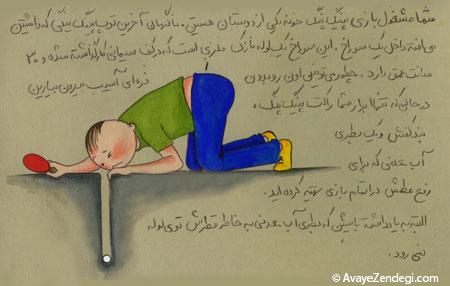 شما مشغول بازی پینگ پنگ خونه یکی از دوستان هستین. ناگهان آخرین توپ پینگ پنگی که داشتین
می افته داخل یک سوراخ. این سوراخ یک لوله نازک فلزی است که در کف سیمانی کار گذاشته شده و ۳۰
سانت عمق دارد. چطوری توپ اون رو بدون
ذره ای آسیب بیرون بیارین
در حالی که تنها ابزار شما راکت پینگ پنگ،
بند کفش و یک بطری
آب معدنی که برای
رفع عطش در اتمام بازی تهیه کرده اید.
البته به یاد داشته باشین که بطری آب معدنی به خاطر قطرش توی لوله
نمی رود.
© AvayeZendegi.com